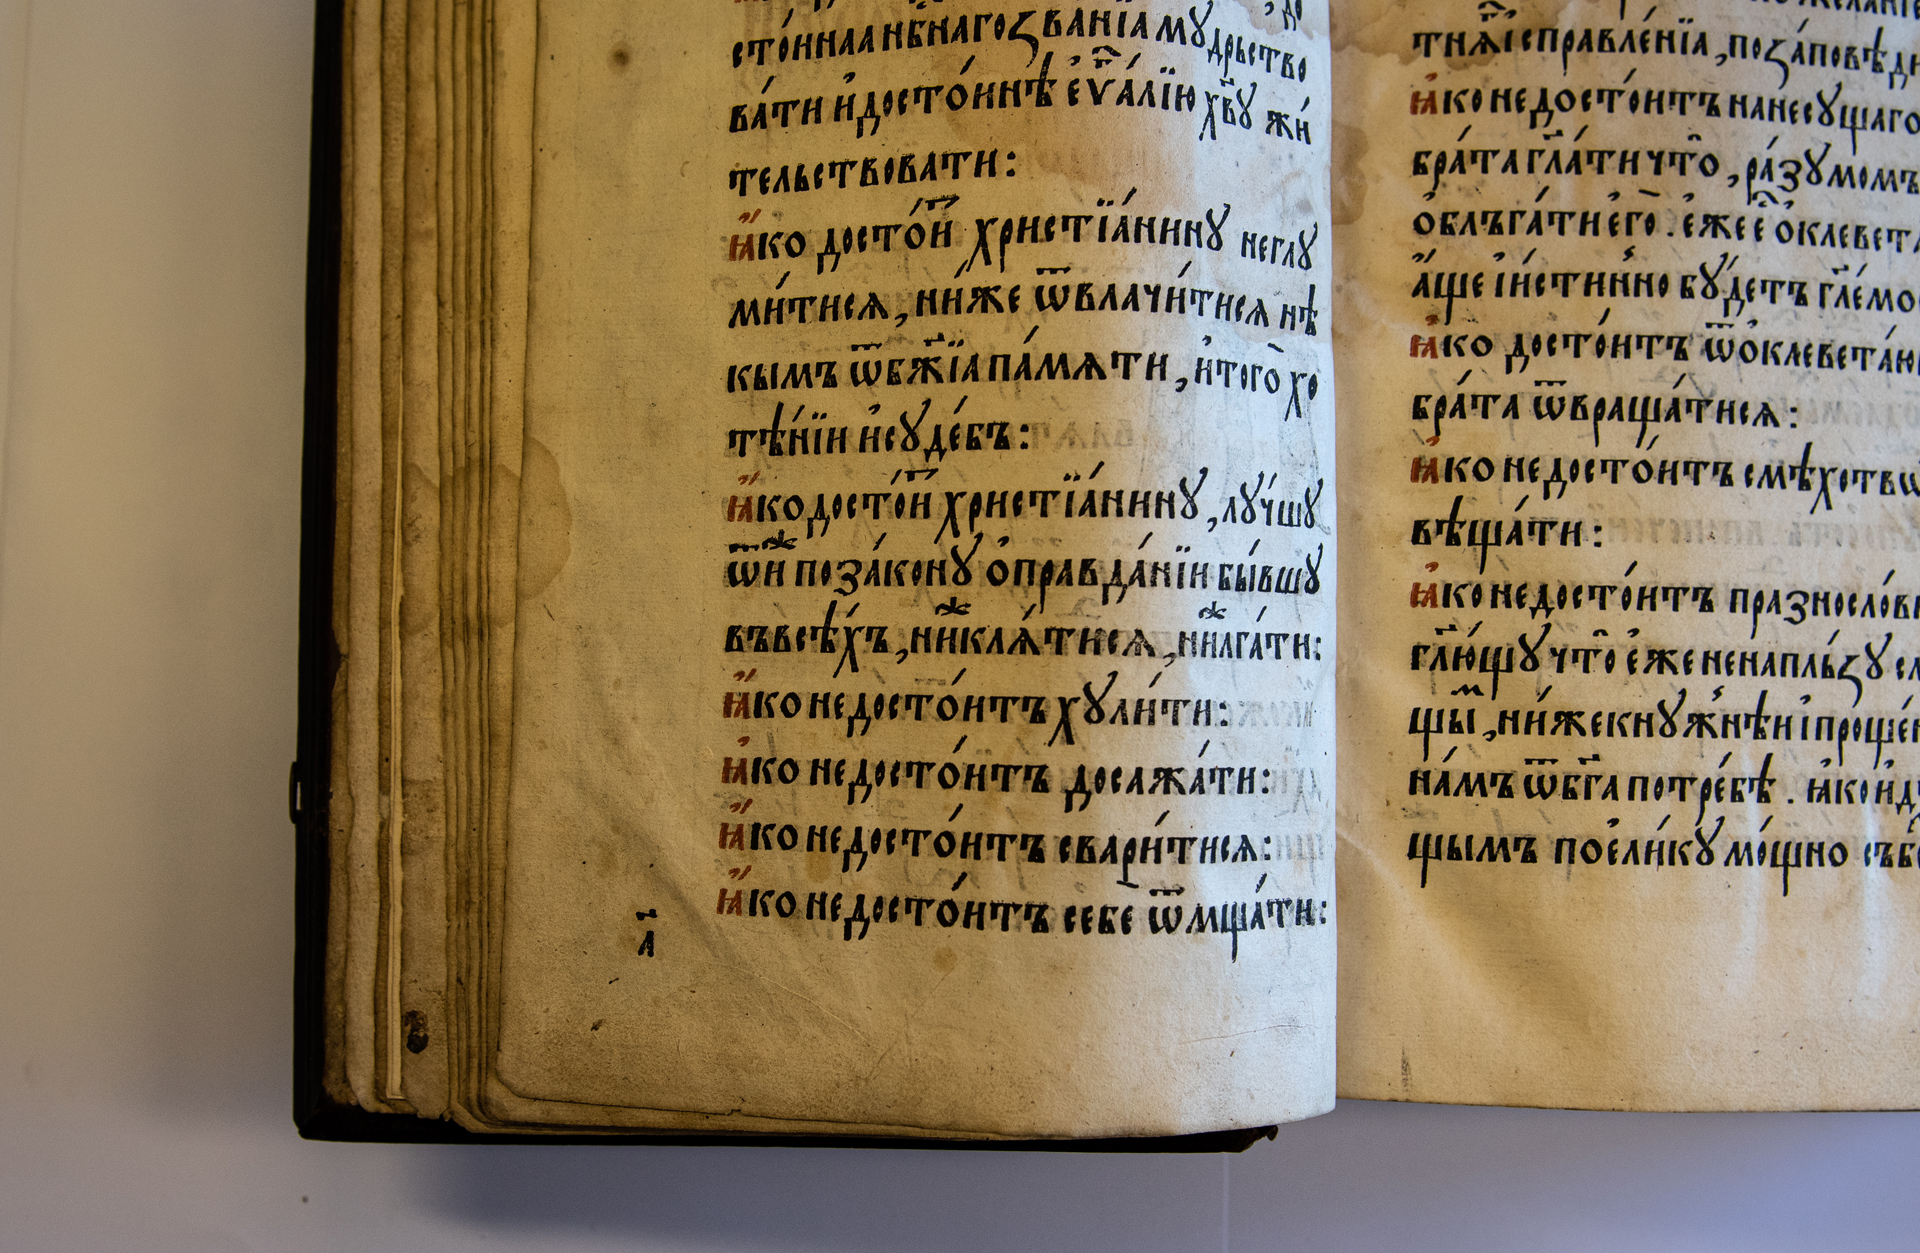 сто́ннаа нб҃наго ꙁва́нїа мꙋдрьство
ва́ти и҆досто́ннѣ е҆ѵⷢ҇а́лїю хв҃ꙋ жи́
тельствовати:
Ꙗ҆́ко досто́и҆ⷮ христїа́нинꙋ неглꙋ
ми́тисѧ, ни́же ѿвлачи́тисѧ нѣ
кымъ ѿбж҃їа па́мѧти, и҆того̀ хо
тѣ́нїи и҆сꙋде́бъ:
Ꙗ҆́ко досто́и҆ⷮ христїа́нинꙋ, лꙋ́чшꙋ
ѿниⷯ поза́конꙋ ѻ҆правда́нїи бы́вшꙋ
въвсѣ́хъ, ни́ⷤклѧ́тисѧ, ни́ⷤлга́ти:
Ꙗ҆́ко недосто́итъ хꙋли́ти:
Ꙗ҆́ко недосто́итъ досажа́ти:
Ꙗ҆́ко недосто́итъ свари́тисѧ:
Ꙗ҆́ко недосто́итъ себе ѿмща́ти:
л҃
тнѧ́ⷢ҇ і҆справле́нїа, по ꙁа́повѣди
Ꙗ҆́ко недосто́итъ нанесꙋщаго
бра́та гл҃а́ти что̀, ра́зꙋмомъ
ѻ҆блъга́ти є҆го̀. є҆же є҆́ ѻ҆клевета
а҆́ще і҆и́стинно бꙋ́детъ гл҃е́мо
Ꙗ҆́ко досто́итъ ѿѻ҆клевета́ю
бра́та ѿвраща́тисѧ:
Ꙗ҆́ко недосто́итъ смѣхотвѡ
вѣща́ти:
Ꙗ҆́ко недосто́итъ празносло́ви
гл҃ю́щꙋ что̀ є҆́же ненапль́ꙁꙋ сл
щыⷨ, ни́жекнꙋ́жнѣи і҆проще́н
на́мъ ѿбг҃а потре́бѣ. ꙗ҆́кои҆д
щымъ поє҆ли́кꙋ мо́щно